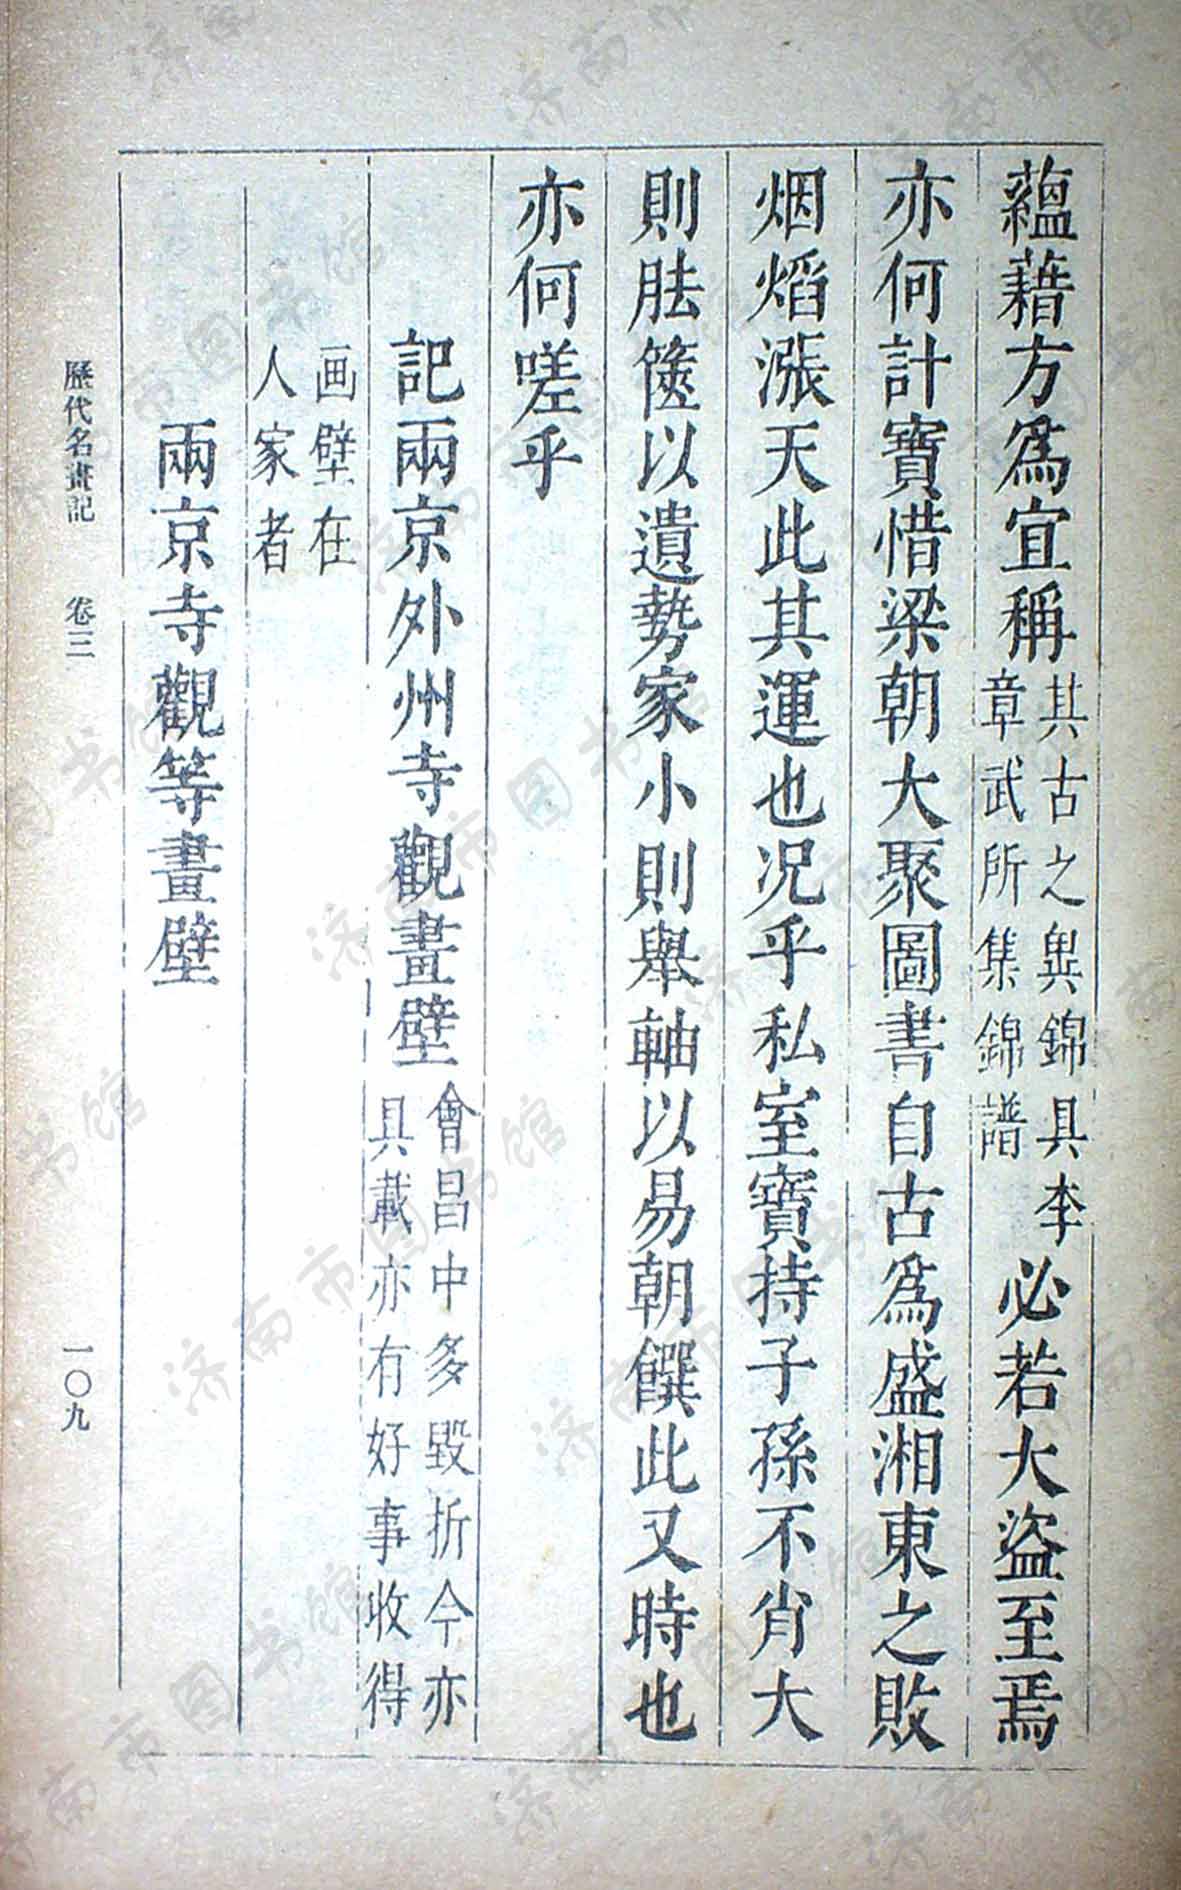 蘊藉方爲宜稱其古之異錦具李章武所集錦譜必若大盜至焉
亦何計寶惜梁朝大聚圖書自古爲盛湘東之敗
烟熖漲天此其運也况乎私室寶持子孫不肖大
則胠篋以遺勢家小則舉軸以易朝饌此又時也
亦何嗟乎
記兩京外州寺觀畫壁會昌中多毀折今亦具載亦有好事收得
画壁在人家者
兩京寺觀等畫壁
歷代名畫記 卷三 一〇九
济南市图书馆